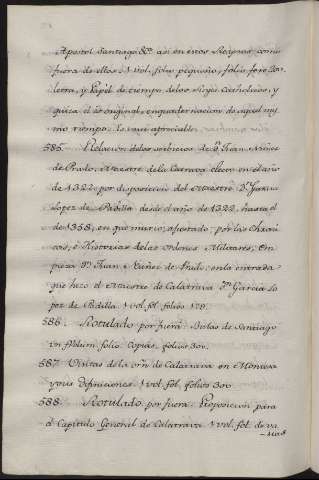 Apostol Santiago &c.ª asi en estos Reynos, como
fuera de ellos: 1 vol. folio pequeño, folio 300.
letra, y Papel de tiempo delos Reyes Catholicos, y
quiza el de original, enquadernacion de aquel mis
mo tiempo. Es mui apreciable.
585. Relacion delos sucesos de D.n Juan Nuñez
de Prado, Maestre de la Calatrava electo en el año
de 1322 por disposicion del Maestre D.n Garcia
Lopez de Padilla desde el año de 1322. hasta el
de 1358, en que murio, ajustado, por las Chroni
cas, é Historias de las Ordenes Militares; Em
pieza D.n Juan Nuñez de Prado, en la entrada
que hizo el Maestre de Calatrava D.n Garcia Lo
pez de Padilla. 1 vol. fol. folio 179.
586. Rotulado por fuera. Bulas de Santiago
un Volum. folio. Copias, folios 300.
587. Visitas de la orn de Calatrava en Montesa
y sus Definiciones 1 vol. fol. folios 300.
588. Rotulado por fuera. Proposicion para
el Capitulo General de Calatrava 1 vol. fol. de va